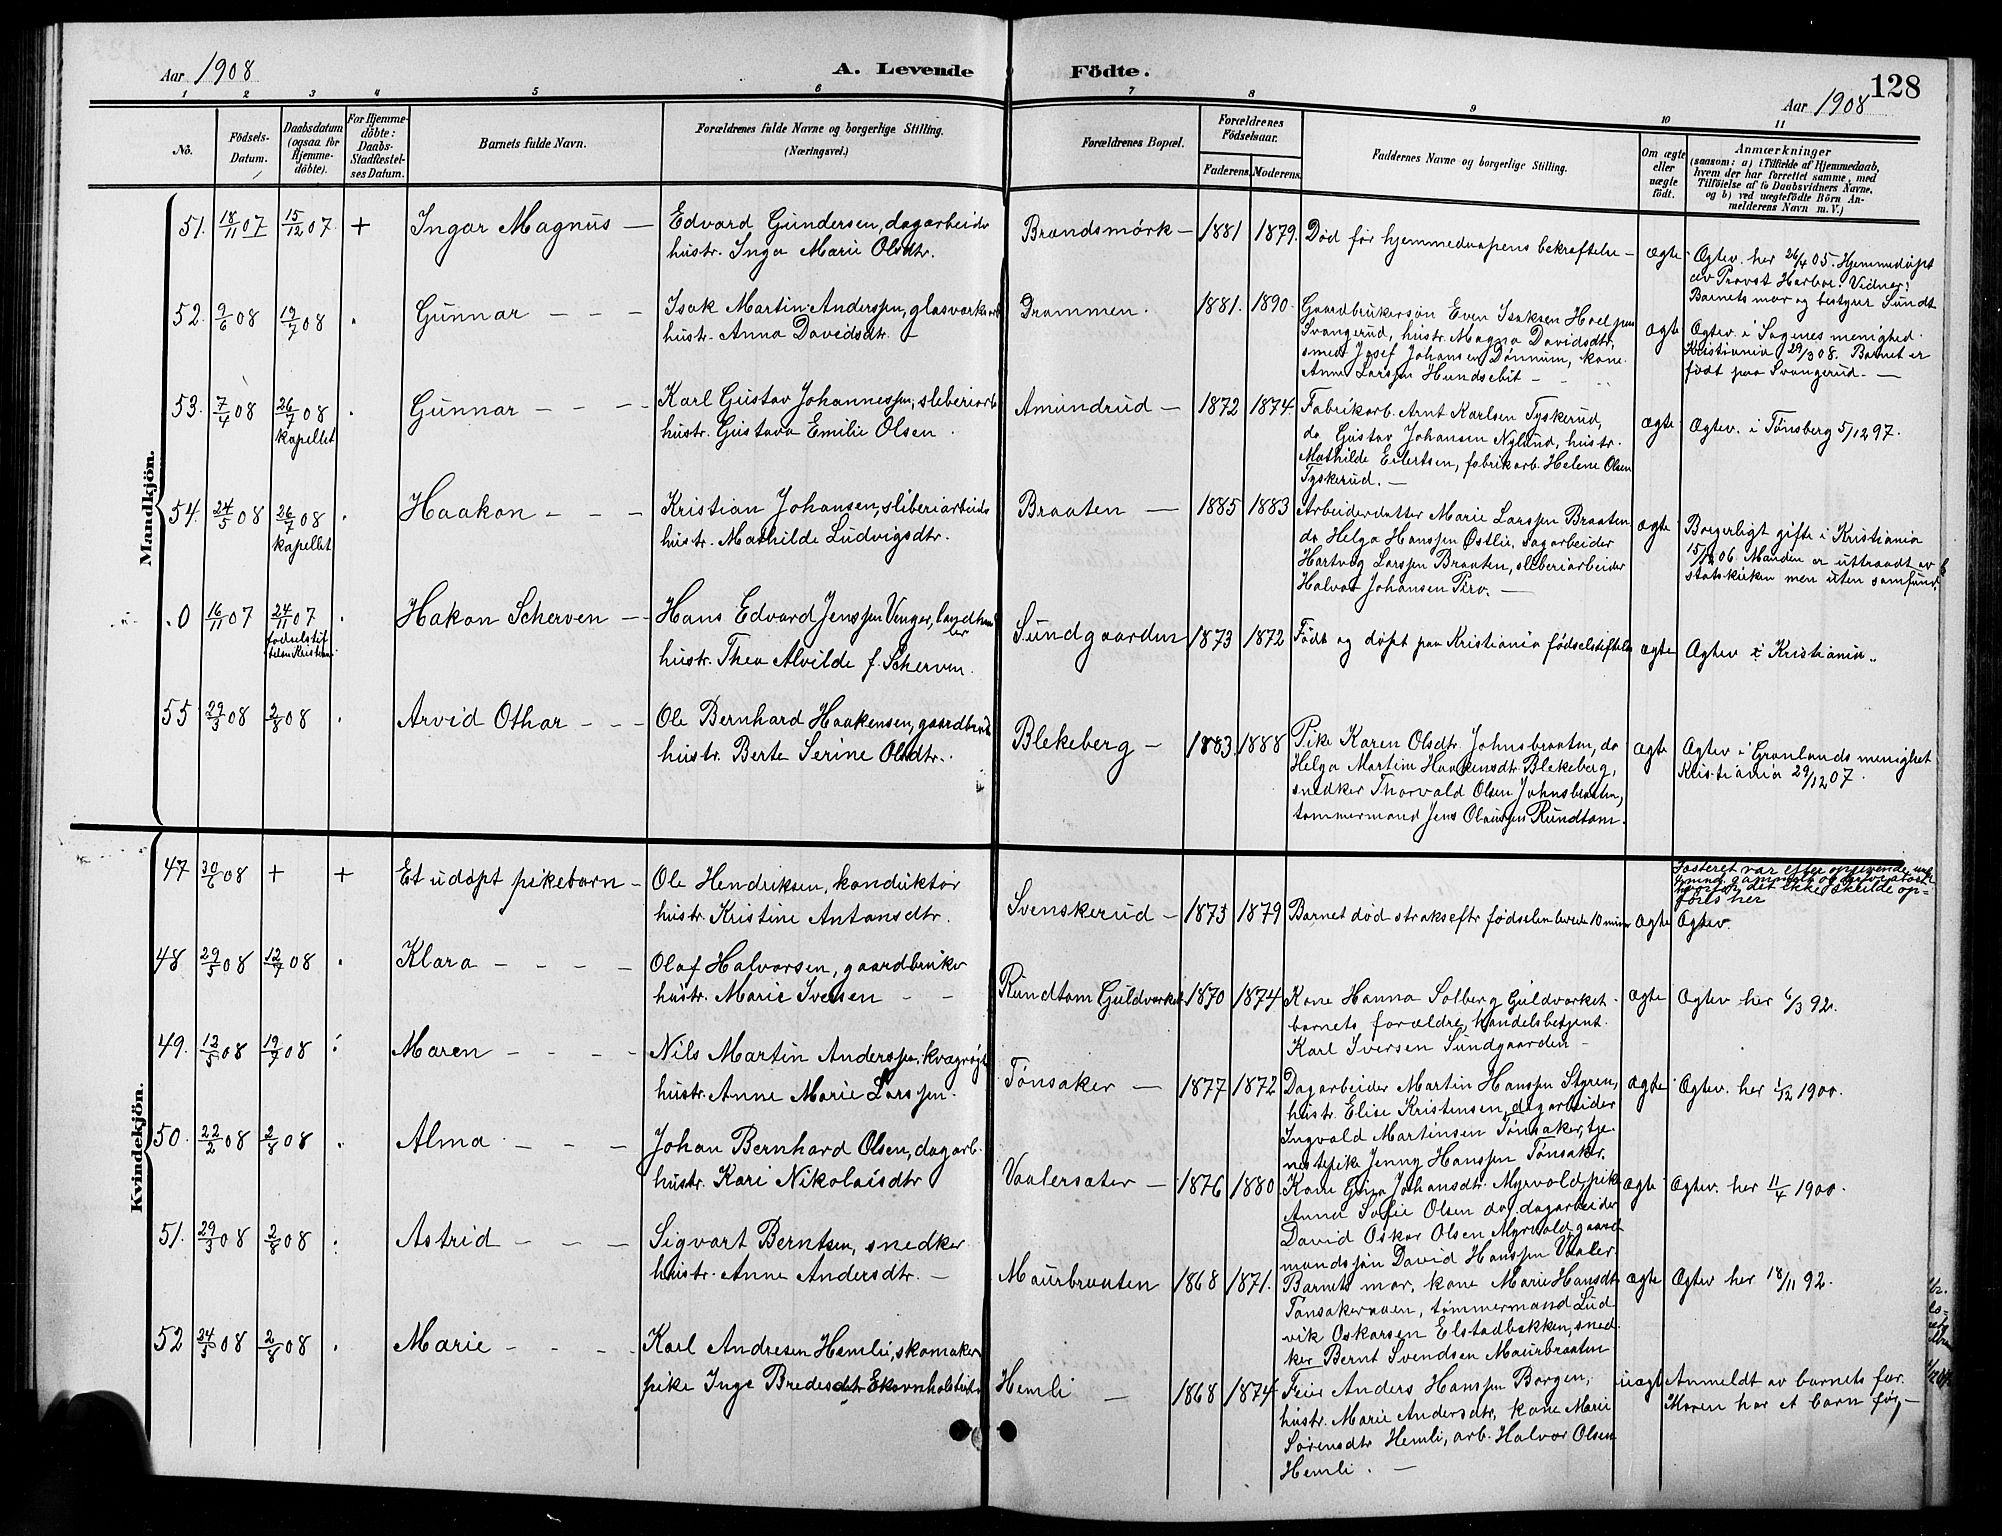 Aar 1908
A. Levende Födte.
128
Aar 1908
1 2 3 4 5 6 7 8 9 10 11
No.
Födsels-Datum.
Daabsdatum (ogsaa for Hjemme-döbte).
For Hjemme-döbte: Daabs-Stadfæstel-ses Datum.
Barnets fulde Navn.
Forældrenes fulde Navne og borgerlige Stilling.
(Næringsvei.)
Forældrenes Bopæl.
Forældrenes Födselsaar.
Faderens. Moderens.
Faddernes Navne og borgerlige Stilling.
Om ægte eller uægte födt.
Anmærkninger
(saasom: a) i Tilfælde af Hjemmedaab, hvem der har forrettet samme, med Tilföielse af to Daabsvidners Navne, og b) ved uægtefödte Börn An-melderens Navn m. V.)
Mandkjön.
51. 18/11 07 15/12 07 + Ingar Magnus —
Edvard Gundersen, dagarbeider
hustr. Inga Marie Olsdtr.
Brandsmörk — 1881 1879.
Død før hjemmedaapens bekræftelse —
ægte
Ægtev. her 26/4 05. Hjemmedøpt
av Provst Harboe. Vidner:
Barnets mor og bestyrer Sundt
52. 9/6 08 19/7 08 Gunnar — — —
Isak Martin Anderssen, glasverksarb
hustr. Anna Davidsdtr. —
Drammen. 1881. 1890.
Gaardbrukersøn Even Isaksen Hoel paa
Svangerud, hustr. Magna Davidsdtr,
smed Josef Johansen Dønnum, kone
Anne Larssen Hundsebit —
ægte
Ægtev. i Sagenes menighed
Kristiania 29/3 08. Barnet er
født paa Svangerud. —
53. 7/4 08 26/7 08 kapellet Gunnar — — —
Karl Gustav Johannessen, sliberiarb
hustr. Gustava Emilie Olsen.
Amundrud — 1872 1874.
Fabrikarb. Arnt Karlsen Tyskerud,
do Gustav Johansen Nylund, hustr.
Mathilde Eilertsen, fabrikarb. Helene Olsen
Tyskerud. —
ægte
Ægtev. i Tønsberg 5/12 97.
54. 24/5 08 26/7 08 kapellet Haakon — — —
Kristian Johansen, sliberiarbeider
hustr. Mathilde Ludvigsdtr.
Braaten — 1885 1883
Arbeiderdatter Marie Larssen Braaten
do Helga Hanssen Østlie, dagarbeider
Hartvig Larssen Braaten, sliberiarbeider
Halvor Johansen Piro. —
ægte
Borgerligt gifte i Kristiania
06. Manden er uttraadt av
statskirken men uten samfund.
0 16/11 07 24/11 07 fødselsstif
telsen Kristiania.
Hakon Scherven —
Hans Edvard Jenssen Venger, landhand
ler
hustr. Thea Alvilde f. Scherven.
Sundgaarden 1873 1872
Født og døpt paa Kristiania fødselsstiftelse
ægte
Ægtev i Kristiania.
55 29/3 08 2/8 08 Arvid Othar — — —
Ole Bernhard Haakensen, gaardbruk
hustr. Berte Serine Olsdtr.
Blekeberg — 1883. 1888
Pike Karen Olsdtr. Johnsbraaten, do
Helga Martine Haakensdtr Blekeberg,
snedker Thorvald Olsen Johnsbraaten,
tømmermand Jens Olaussen Rundtom.
ægte
Ægtev i Grønlands menighet
Kristiania 29/12 07.
Kvindekjön.
47 30/6 08 + + Et udøpt pikebarn —
Ole Hendriksen, konduktør
hustr. Kristine Antonsdtr.
Svenskerud — 1873 1879
Barnet død straks eftr fødselen levede 10 minr
ægte
Fosteret var efter opgivende
det ikke skulde op-
føres her
Ægtev.
48 29/5 08 12/7 08 Klara — — — —
Olaf Halvorsen, gaardbruker
hustr. Marie Iversen — —
Rundtom Guldverket 1870 1874
Kone Hanna Solberg Guldverket
barnets forældre, handelsbetjent
Karl Iversen Sundgaarden —
ægte
Ægtev her 6/3 92.
49. 12/5 08 19/7 08 Maren — — — —
Nils Martin Anderssen, kvægrøgt
hustr. Anne Marie Larssen.
Tønsaker — 1877 1872
Dagarbeider Martin Hanssen Styren,
hustr. Elise Kristensen, dagarbeider
Ingvald Martinsen Tønsaker, tje-
nestepike Jenny Hanssen Tønsaker.
ægte
Ægtev. her 1/12 1900.
50. 22/2 08 2/8 08 Alma — — —
Johan Bernhard Olsen, dagarb.
hustr. Kari Nikolaisdtr
Vaalersæter — 1876 1880
Kone Grina Johansdtr. Myrvold, pike
Anna Sofie Olsen do, dagarbeider
David Oskar Olsen Myrvold gaard
mandssøn David Hanssen Vaaler
ægte
Ægtev. her 11/4 1900.
51. 29/3 08 2/8 08 Astrid — — —
Sigvart Berntsen, snedker
hustr. Anne Andersdtr. —
Maurbraaten 1868 1871.
Barnets mor, kone Marie Hansdtr
Tønsakeraaen, tømmermand Lud
vik Oskarsen Elstadbakken, sned
ker Bernt Svendsen Maurbraaten
ægte
Ægtev her 18/11 92.
52 24/5 08 2/8 08 Marie — — — —
Karl Andresen Hemli, skomaker
pike Inga Bredesdtr Ekornholstuen
Hemli — 1868 1874
Feier Anders Hanssen Borgen,
hustr. Marie Andersdtr, kone Marie
Sørensdtr Hemli, arb. Halvor Olsen
Hemli. —
uægt
Anmeldt av barnets far.
Moren har et barn før, —